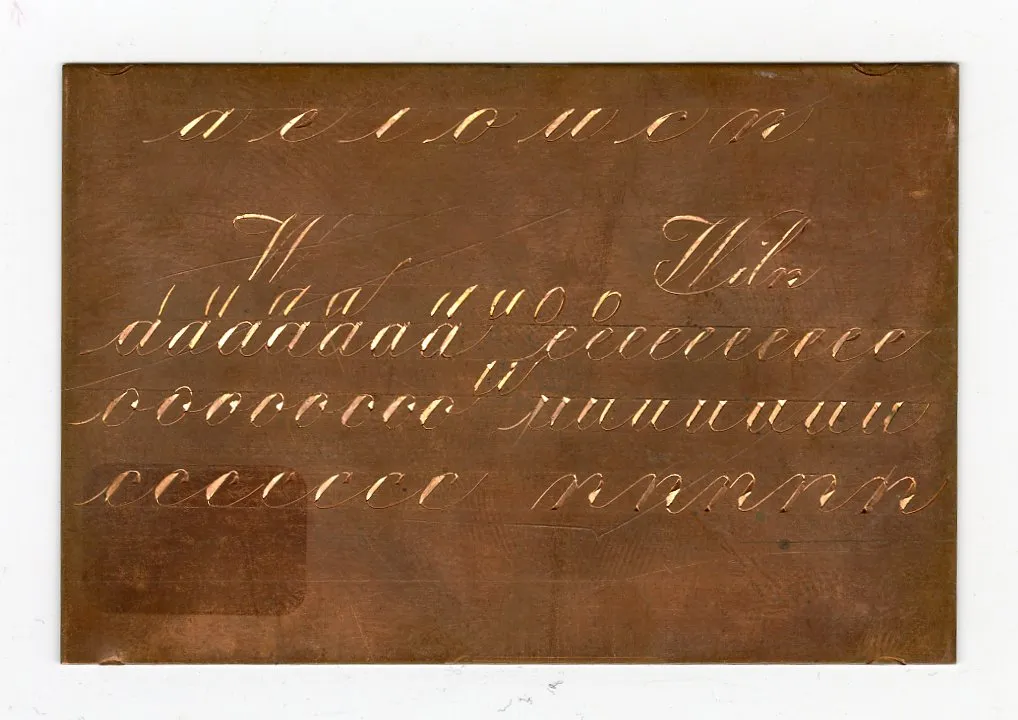 a e i o u c n
W Wiln
a a a a a a a e e e e e e e e e e
o o o o o o o o u u u u u u u
c c c c c c c n n n n n n